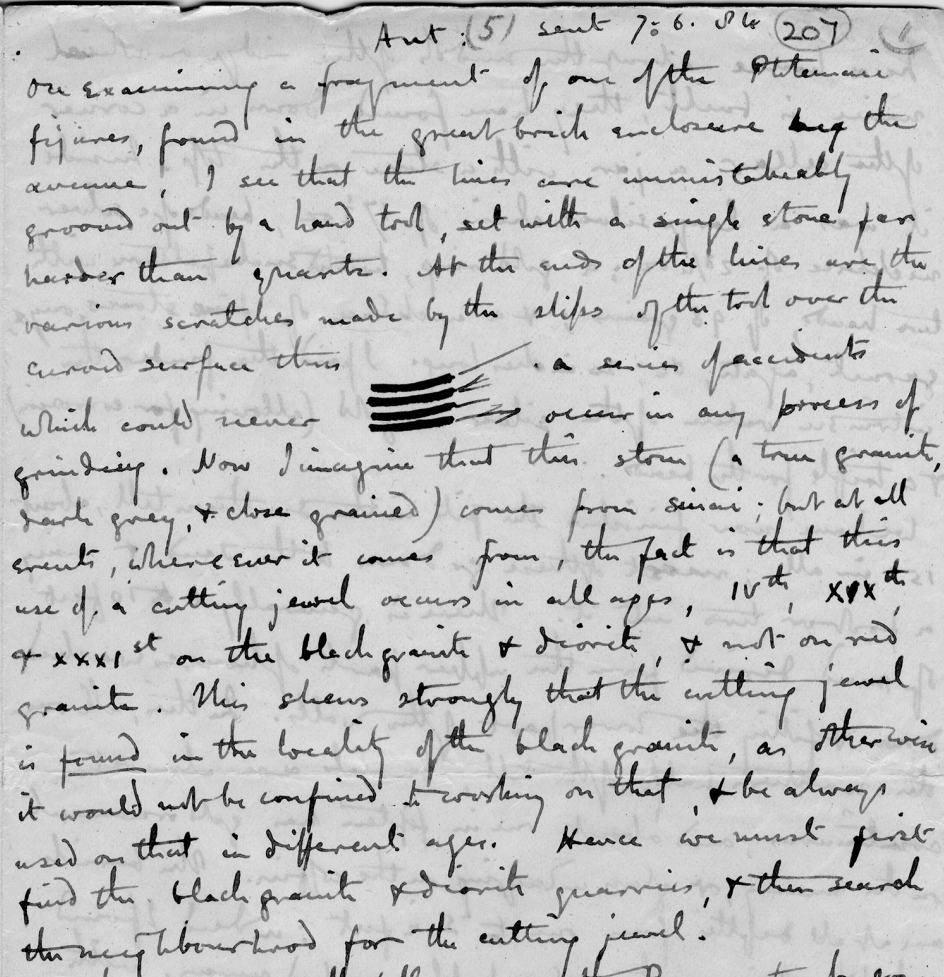 Ant: (5) sent 7:6.84 (207)
On examining a fragment of one of the Ptolemaic
figures, found in the great brick enclosure the
avenue, I see that the lines are unmistakeably
grooved out by a hand tool, set with a single stone far
harder than quartz. At the ends of the lines are the
various scratches made by the slips of the tool over the
curved surface thus . a series of accidents
which could never occur in any process of
grinding. Now I imagine that this stone (a true granite,
dark grey, & close grained) comes from Sinai; but at all
events, whereever it comes from, the fact is that this
use of a cutting jewel occurs in all ages, IVth, XIXth,
& XXXIst on the black granite & diorite, & not on red
granite. This shews strongly that the cutting jewel
is found in the locality of the black granite, as otherwise
it would not be confined to working on that, & be always
used on that in different ages. Hence we must first
find the black granite & diorite quarries, & then search
the neighbourhood for the cutting jewel.